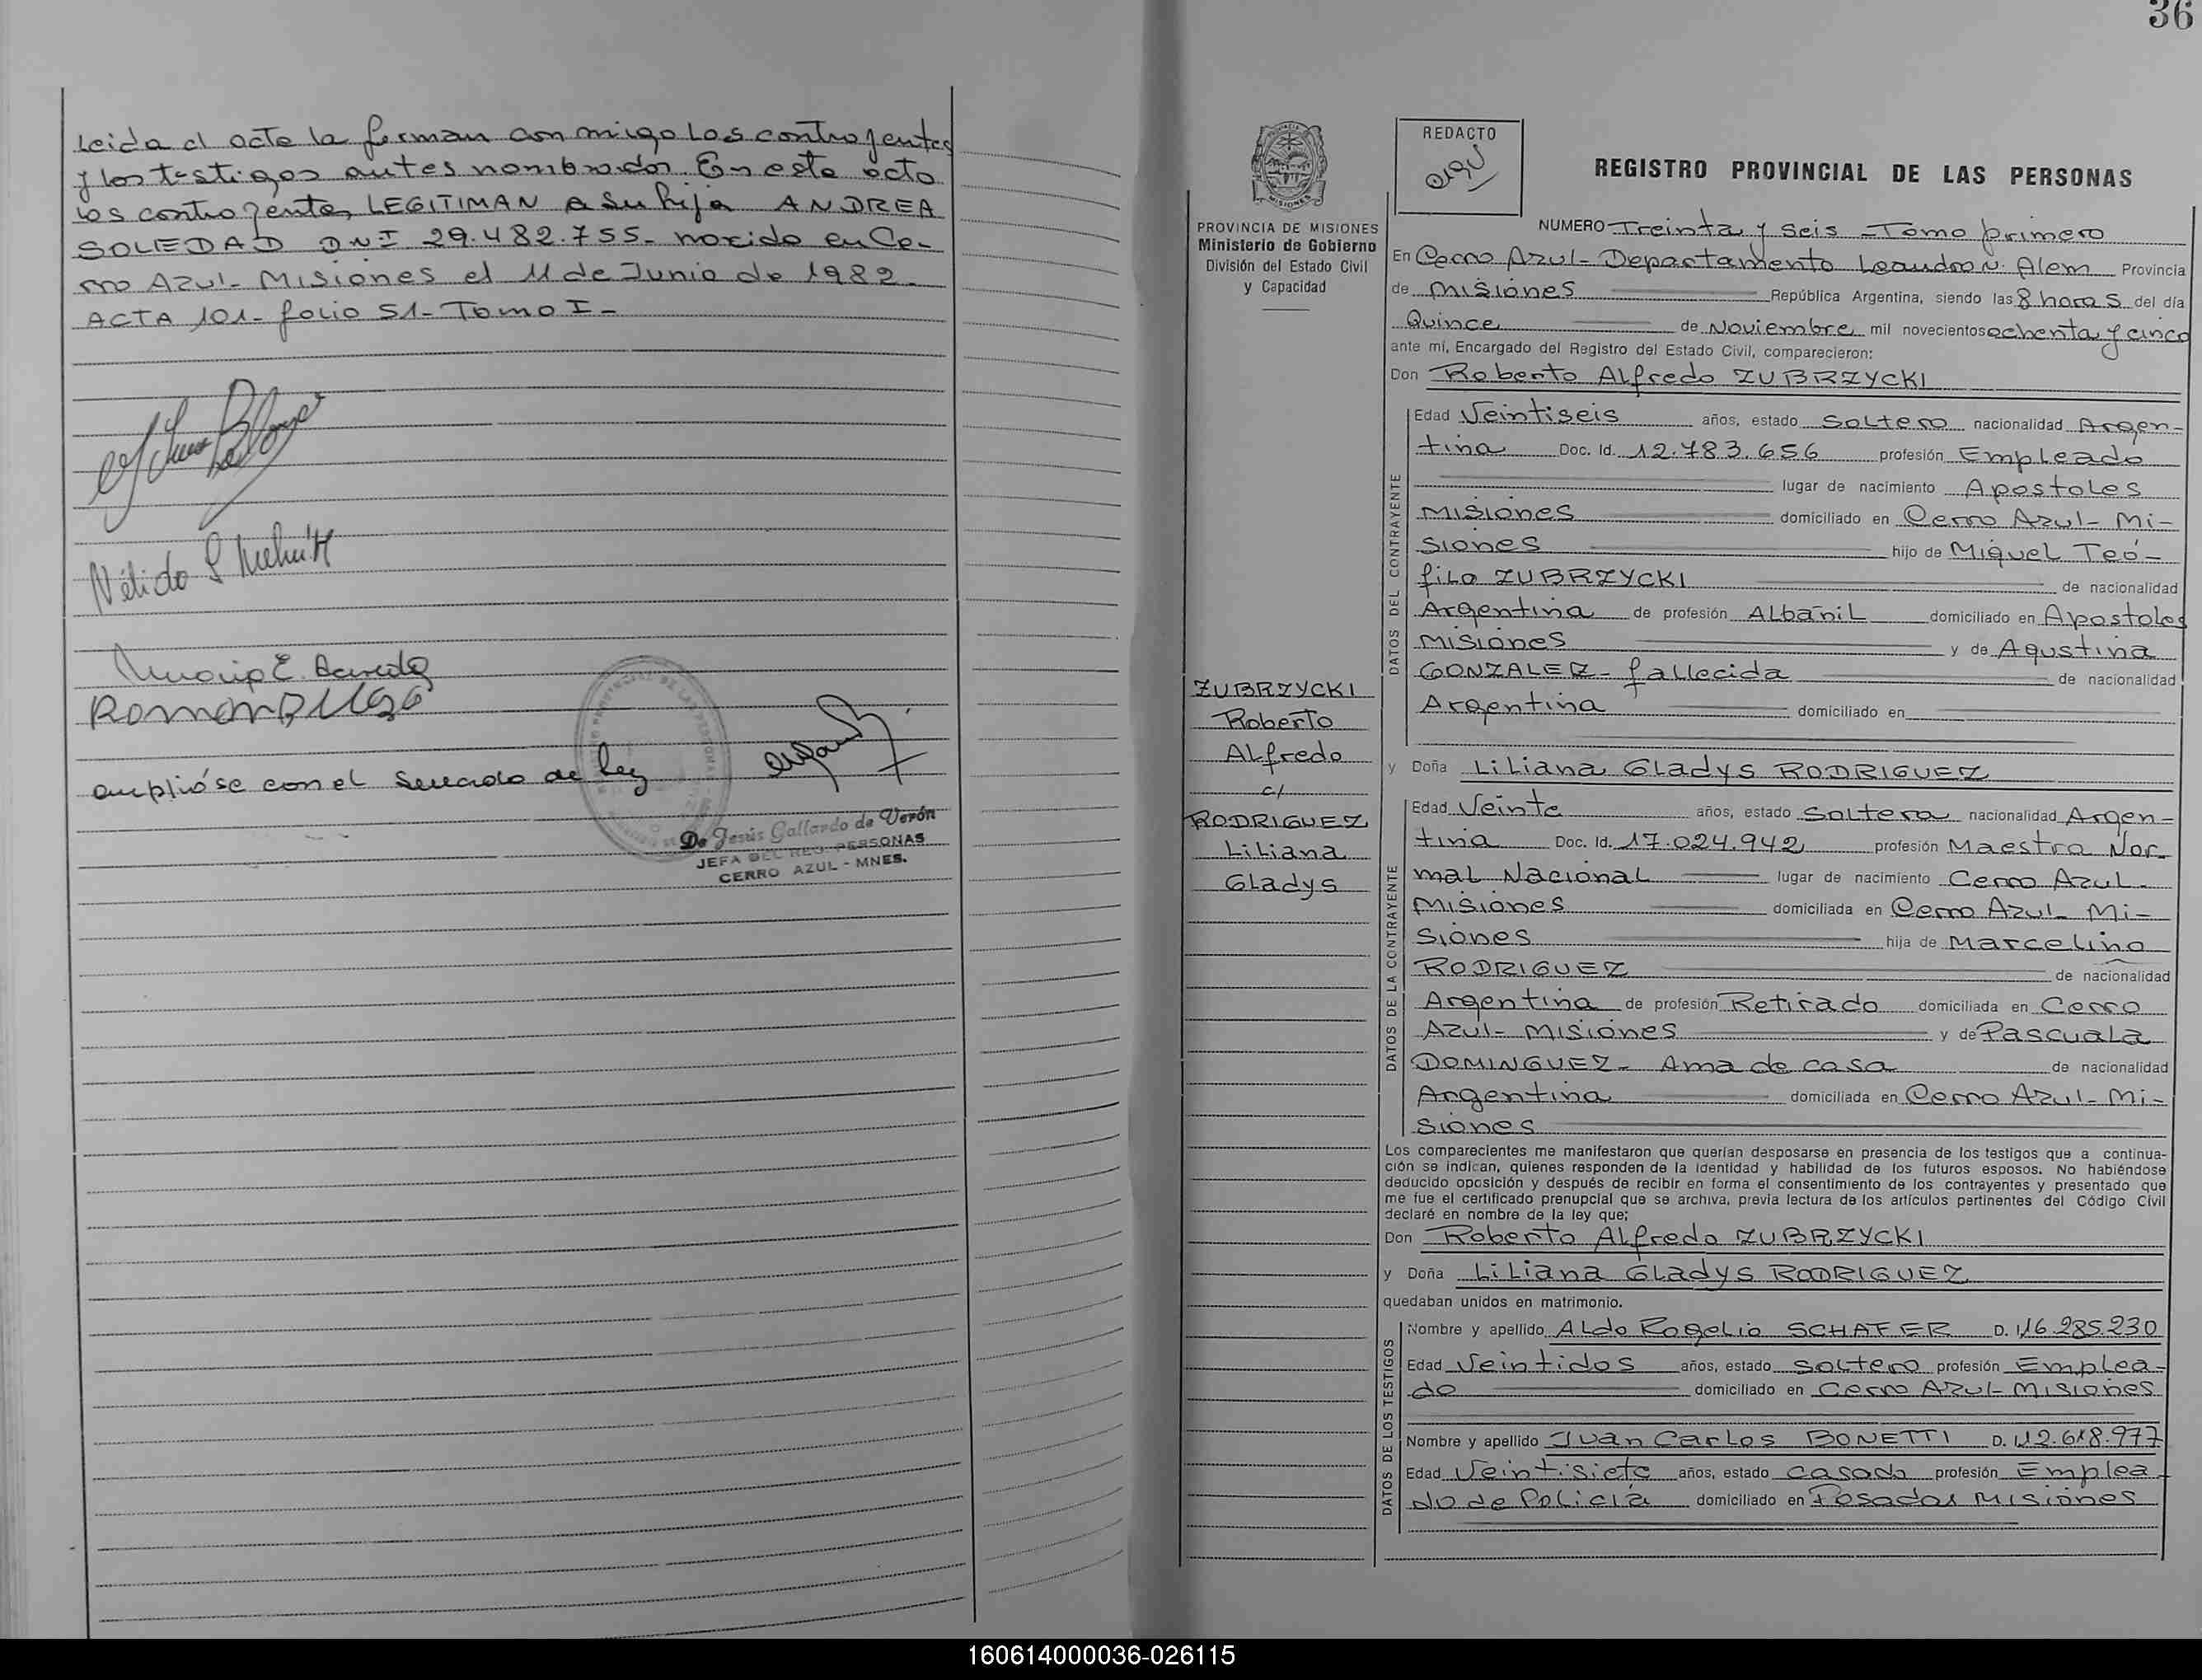 Leida el acta la firman con migo los contrayentes
y los testigos antes nombrados. En este acto
los contrayentes LEGITIMAN a su hija ANDREA
SOLEDAD DNI 29.482.755- nacida en Ce-
rro Azul- Misiones el 11 de Junio de 1982-
ACTA 101- folio 51- Tomo I-
amplióse con el sellado de ley
De Jesús Gallardo de Verón
JEFA DEL REG. PERSONAS
CERRO AZUL - MNES.
36
PROVINCIA DE MISIONES
Ministerio de Gobierno
División del Estado Civil
y Capacidad
ZUBRZYCKI
Roberto
Alfredo
c/
RODRIGUEZ
Liliana
Gladys
REDACTO
REGISTRO PROVINCIAL DE LAS PERSONAS
NUMERO Treinta y Seis - Tomo primero
En Cerro Azul- Departamento Leandro N. Alem Provincia
de Misiones República Argentina, siendo las 8 horas del día
Quince de Noviembre mil novecientos ochenta y cinco
ante mí, Encargado del Registro del Estado Civil, comparecieron:
Don Roberto Alfredo ZUBRZYCKI
DATOS DEL CONTRAYENTE
Edad Veintiseis años, estado Soltero nacionalidad Argen-
tina Doc. Id. 12.783.656 profesión Empleado
lugar de nacimiento Apostoles
Misiones domiciliado en Cerro Azul- Mi-
siones hijo de Miguel Teó-
filo ZUBRZYCKI de nacionalidad
Argentina de profesión Albañil domiciliado en Apostoles
Misiones y de Agustina
GONZALEZ- fallecida de nacionalidad
Argentina domiciliado en
y Doña Liliana Gladys RODRIGUEZ
DATOS DE LA CONTRAYENTE
Edad Veinte años, estado Soltera nacionalidad Argen-
tina Doc. Id. 17.024.942 profesión Maestra Nor-
mal Nacional lugar de nacimiento Cerro Azul-
Misiones domiciliada en Cerro Azul- Mi-
siones hija de Marcelino
RODRIGUEZ de nacionalidad
Argentina de profesión Retirado domiciliada en Cerro
Azul- Misiones y de Pascuala
DOMINGUEZ- Ama de casa de nacionalidad
Argentina domiciliada en Cerro Azul- Mi-
siones
Los comparecientes me manifestaron que querían desposarse en presencia de los testigos que a continua-
ción se indican, quienes responden de la identidad y habilidad de los futuros esposos. No habiéndose
deducido oposición y después de recibir en forma el consentimiento de los contrayentes y presentado que
me fue el certificado prenupcial que se archiva, previa lectura de los artículos pertinentes del Código Civil
declaré en nombre de la ley que;
Don Roberto Alfredo ZUBRZYCKI
y Doña Liliana Gladys RODRIGUEZ
quedaban unidos en matrimonio.
DATOS DE LOS TESTIGOS
Nombre y apellido Aldo Rogelio SCHAFER D. I. 16.285.230
Edad Veintidos años, estado Soltero profesión Emplea-
do domiciliado en Cerro Azul- Misiones
Nombre y apellido Juan Carlos BONETTI D. I. 12.618.977
Edad Veintisiete años, estado casado profesión Emplea
do de Policía domiciliado en Posadas Misiones
160614000036-026115